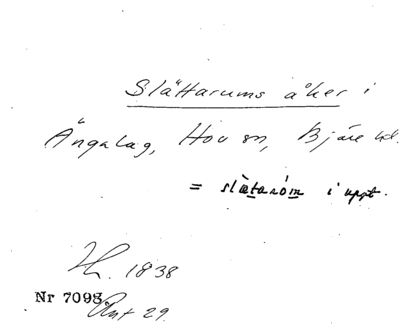 Slättarums åker i
Ängalag, Hov sn, Bjäre hd.
= slætaróm i uppt.
Lh. 1838
Nr 7098 Ant 29.